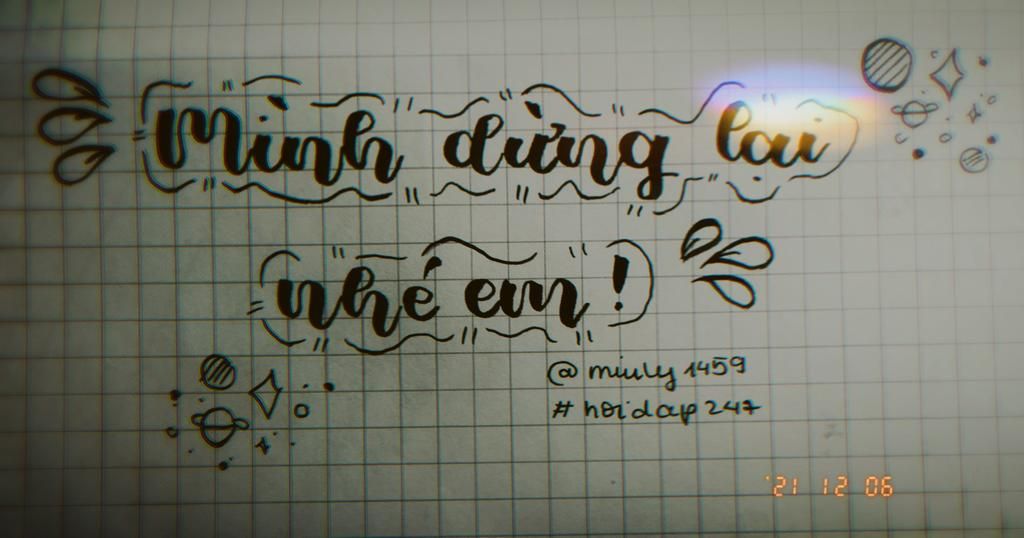 Mình dừng lại
nhé em !
@ miuly 1459
# hoidap 247
'21 12 06